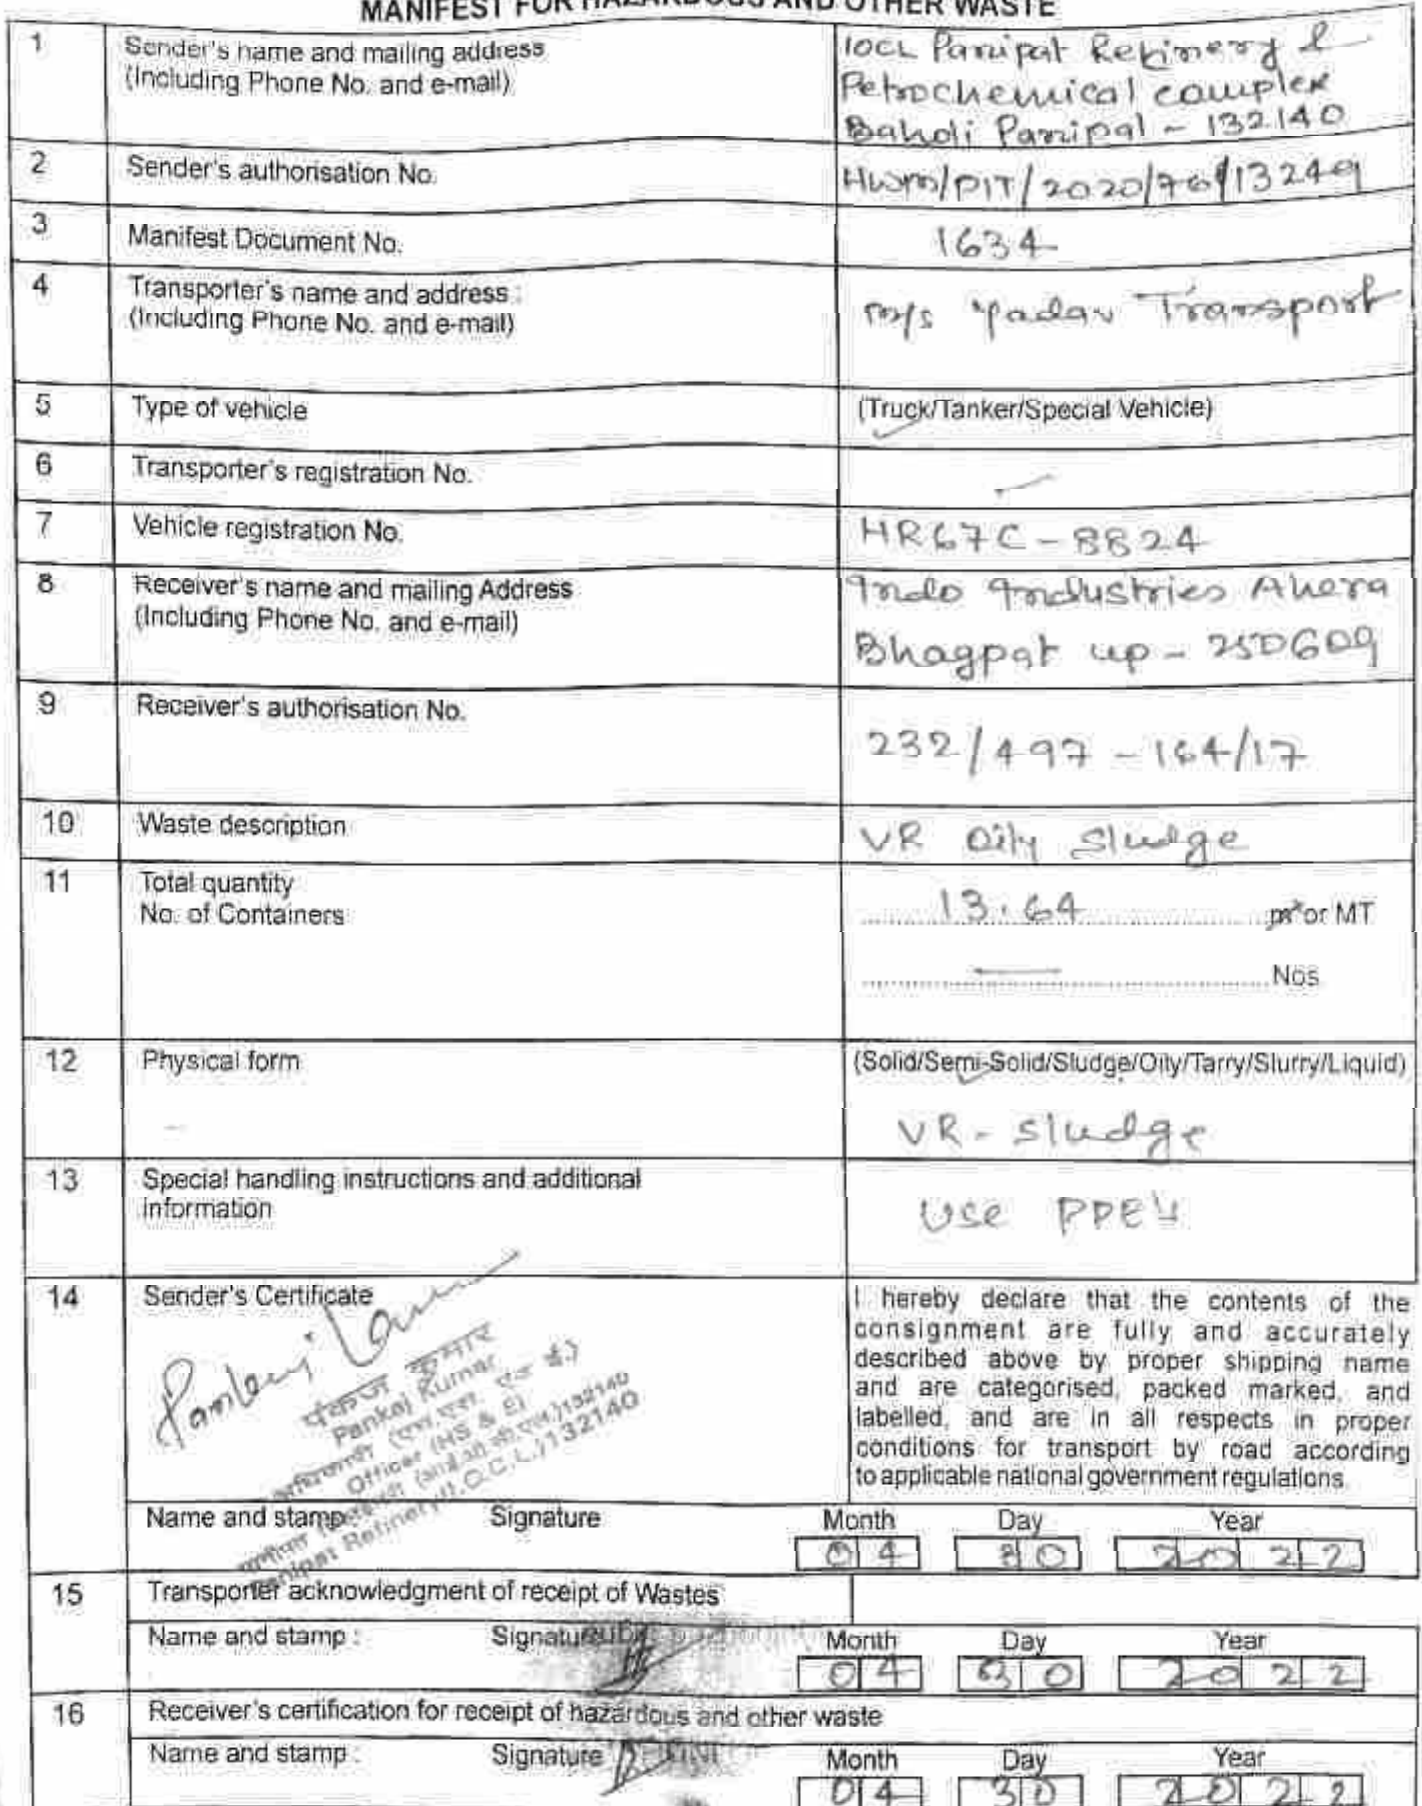 MANIFEST FOR HAZARDOUS AND OTHER WASTE
1 Sender's name and mailing address
(Including Phone No. and e-mail)
IOCL Panipat Refinery &
Petrochemical complex
Baholi Panipat - 132140
2 Sender's authorisation No. HWM/PIT/2020/76/13249
3 Manifest Document No. 1634
4 Transporter's name and address :
(Including Phone No. and e-mail)
M/s Yadav Transport
5 Type of vehicle (Truck/Tanker/Special Vehicle)
6 Transporter's registration No.
7 Vehicle registration No. HR67C-8824
8 Receiver's name and mailing Address
(Including Phone No. and e-mail)
Indo Industries Ahera
Bhagpat up - 250609
9 Receiver's authorisation No.
232/497-164/17
10 Waste description VR Oily Sludge
11 Total quantity
No. of Containers
13.64 m³ or MT
Nos
12 Physical form (Solid/Semi-Solid/Sludge/Oily/Tarry/Slurry/Liquid)
VR - Sludge
13 Special handling instructions and additional
information
Use PPE's
14 Sender's Certificate
I hereby declare that the contents of the
consignment are fully and accurately
described above by proper shipping name
and are categorised, packed marked, and
labelled, and are in all respects in proper
conditions for transport by road according
to applicable national government regulations.
पंकज कुमार
Pankaj Kumar
Officer (HS & E)
Panipat Refinery (I.O.C.L.) 132140
Name and stamp : Signature Month Day Year
04 30 2022
15 Transporter acknowledgment of receipt of Wastes
Name and stamp : Signature Month Day Year
04 30 2022
16 Receiver's certification for receipt of hazardous and other waste
Name and stamp : Signature Month Day Year
04 30 2022